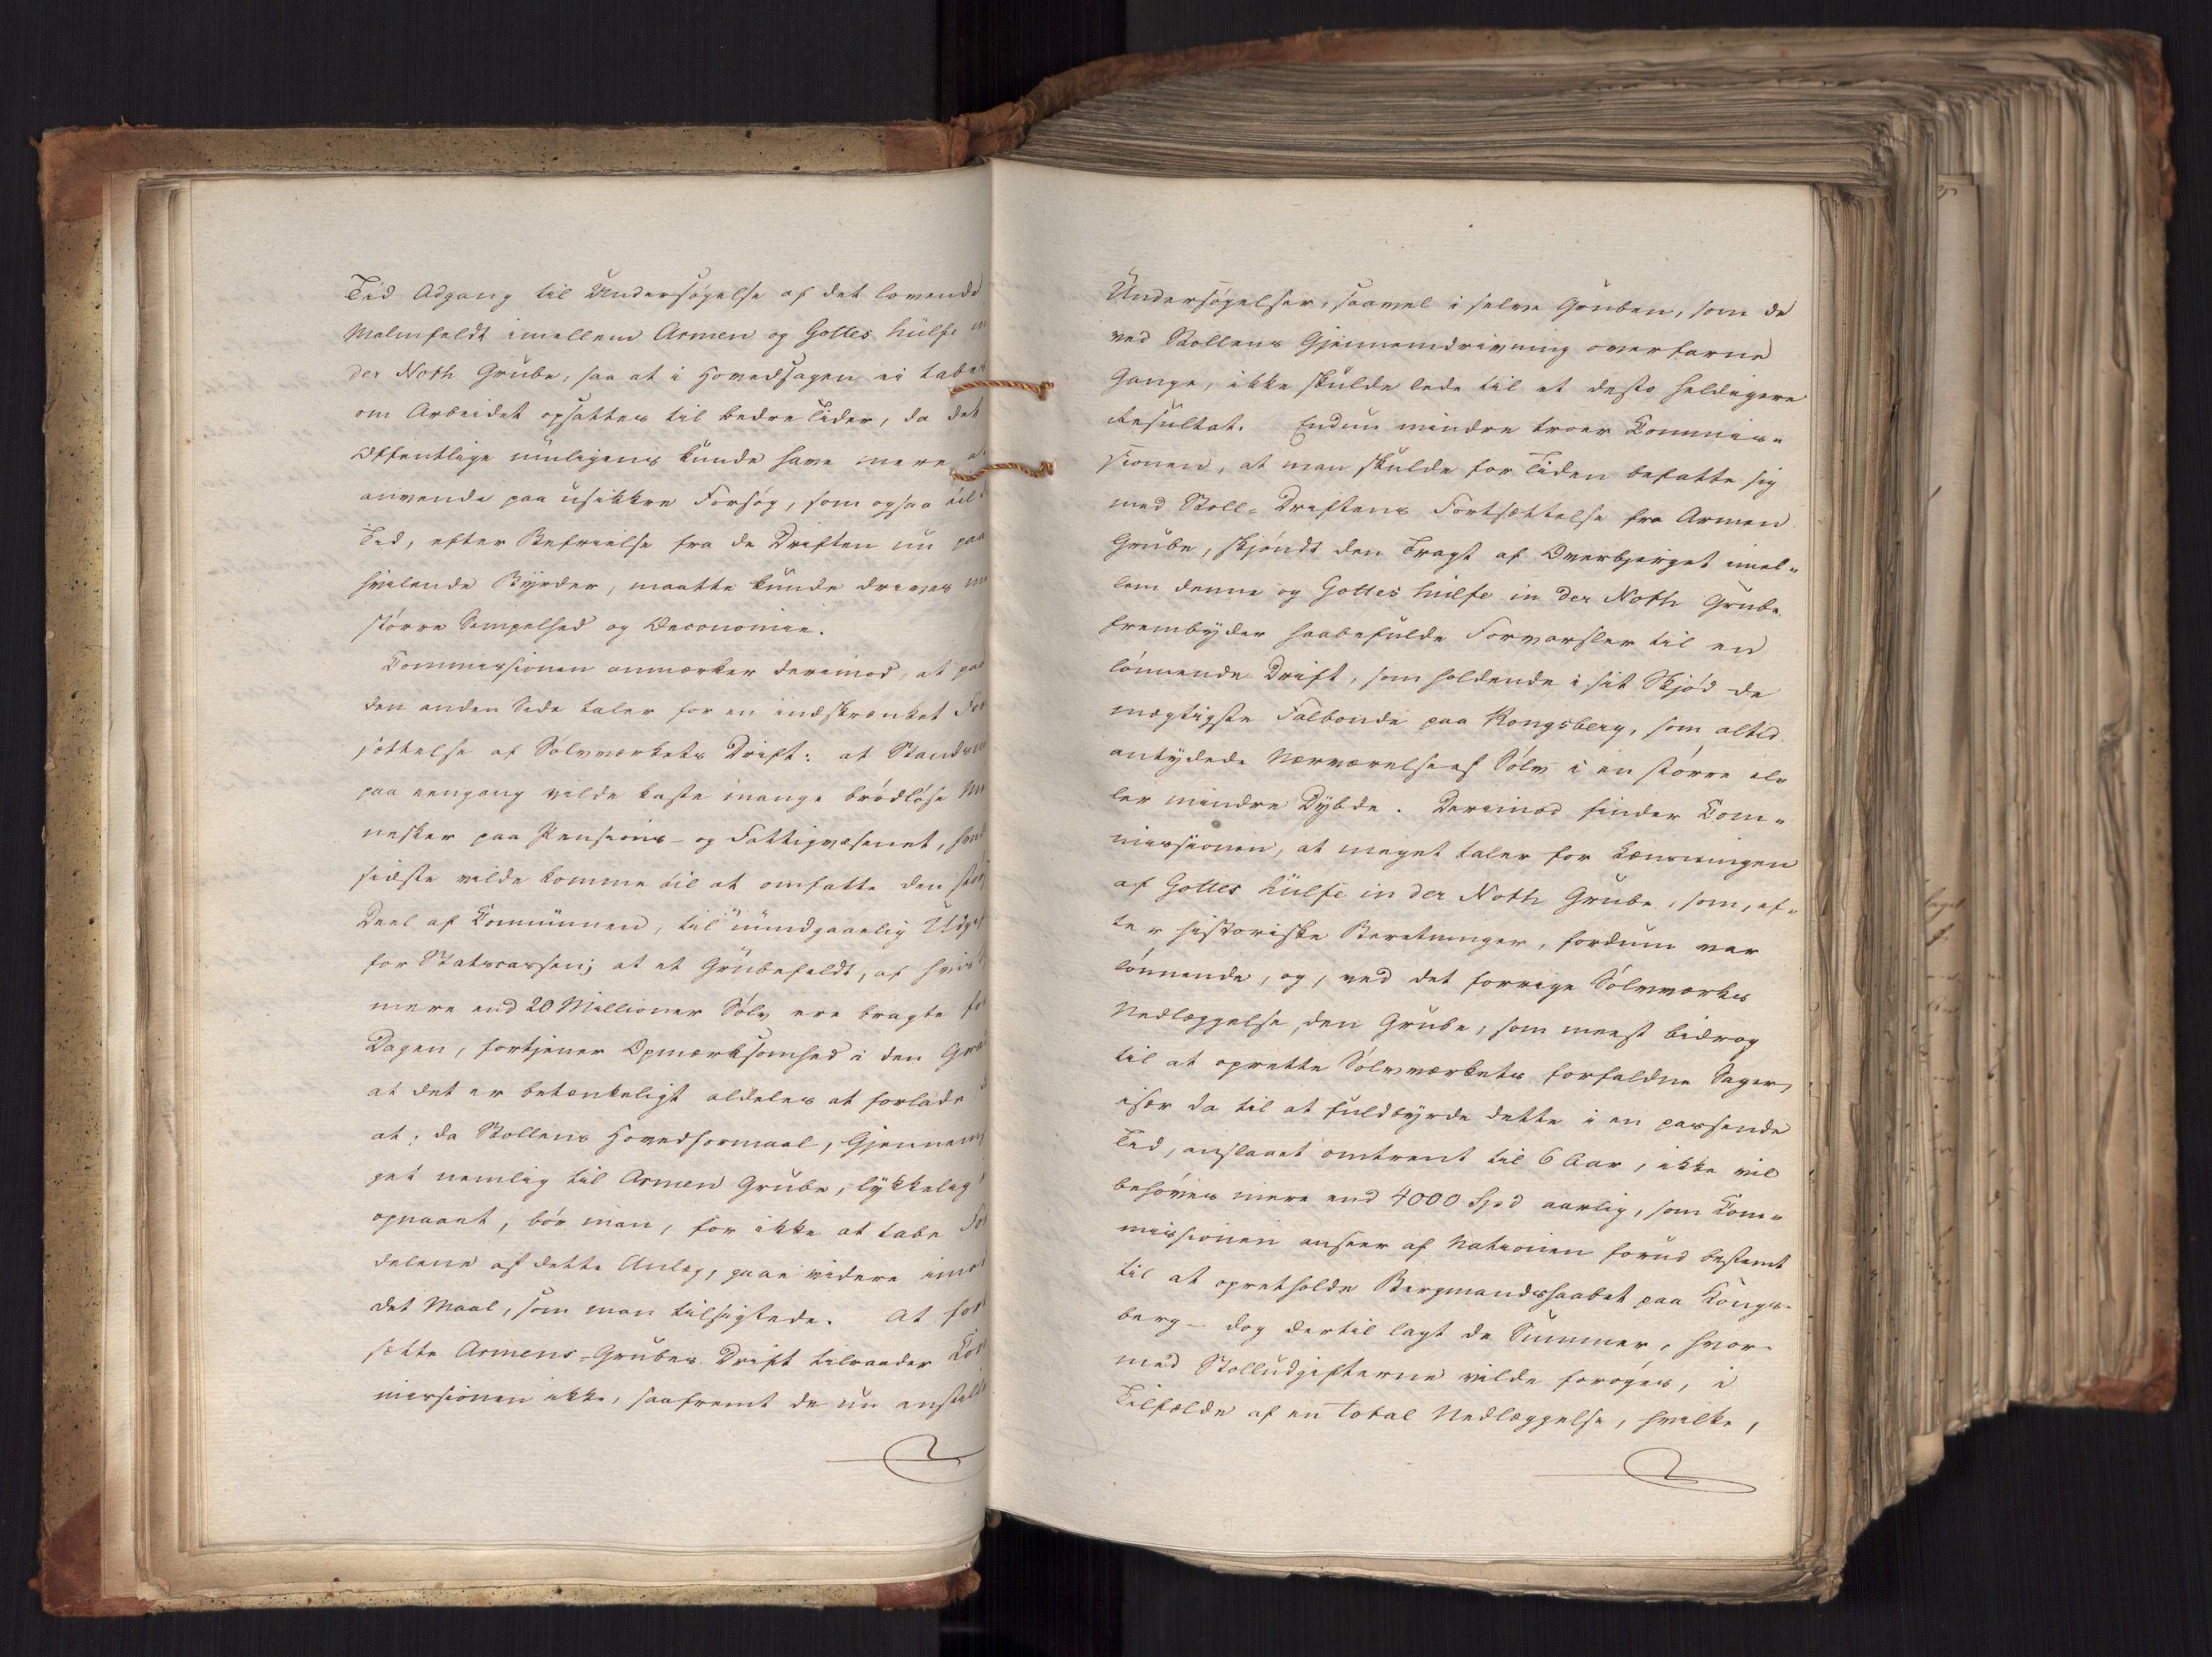 Tid Adgang til Undersøgelse af det lovende
Malmfeldt imellem Armen og Gottes hülfe in
der Noth Grube, saa at i Hovedsagen ei tabes
om Arbeidet opsattes til bedre Tider, da det
Offentlige muligens kunde have mere at
anvende paa usikkre Forsøg, som ogsaa til
Tid, efter Befrielse fra de Driften nu paa
hvilende Byrder, maatte kunde drives
større Simpelhed og Oeconomie.
Commissionen anmærker derimod, at paa
den anden Side taler for en indskrænket For
sættelse af Sølvværkets Drift: at Standsn
paa eengang vilde kaste mange brødløse Me
nesker paa Pensions- og Fattigvæsenet, hvil
sidste vilde komme til at omfatte den stør
Deel af Communen, til uundgaaelig Udgif
for Statscassen; at et Grubefeldt, af hvis
mere end 20 Millioner Sølv ere bragte for
Dagen, fortjener Opmærksomhed i den Grad
at det er betænkeligt aldeles at forlade
at, da Stollens Hovedformaal, Gjennems
get nemlig til Armen Grube, lykkelig
opnaaet, bør man, for ikke at tabe For
delene af dette Anlæg, gaae videre imod
det Maal, som man tilsigtede. At for
sætte Armens-Grubes Drift tilraader Com
missionen ikke, saafremt de nu anstillede
Undersøgelser, saavel i selve Gruben, som de
ved Stollens Gjennemdrivning overfarne
Gange, ikke skulde lede til et desto heldigere
Resultat. Endnu mindre troer Commis-
sionen, at man skulde for Tiden befatte sig
med Stoll-Driftens Fortsættelse fra Armen
Grube, skjøndt den Tragt af Overbjerget imel-
lem denne og Gottes hülfe in der Noth Grube
frembyder haabefulde Forvarsler til en
lønnende Drift, som holdende i sit Skjød de
mægtigste Falbonde paa Kongsberg, som altid
antydede Nærværelse af Sølv i en større el-
ler mindre Dybde. Derimod finder Com-
missionen, at meget taler for Lænsningen
af Gottes hülfe in der Noth Grube, som, ef-
ter historiske Beretninger, fordum var
lønnende, og, ved det forrige Sølvværks
Nedlæggelse, den Grube, som meest bidrog
til at oprette Sølvværkets forfaldne Sager,
især da til at fuldbyrde dette i en passende
Tid, anslaaet omtrent til 6 Aar, ikke vil
behøves mere end 4000 Spd aarlig, som Com-
missionen anseer af Nationen forud bestemt
til at opretholde Bergmandsskabet paa Kongs-
berg - dog dertil lagt de Summer, hvor-
med Stolludgifterne vilde forøges, i
Tilfælde af en total Nedlæggelse, hvilke,